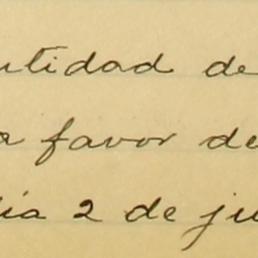 ntidad de
a favor de
ía 2 de ju